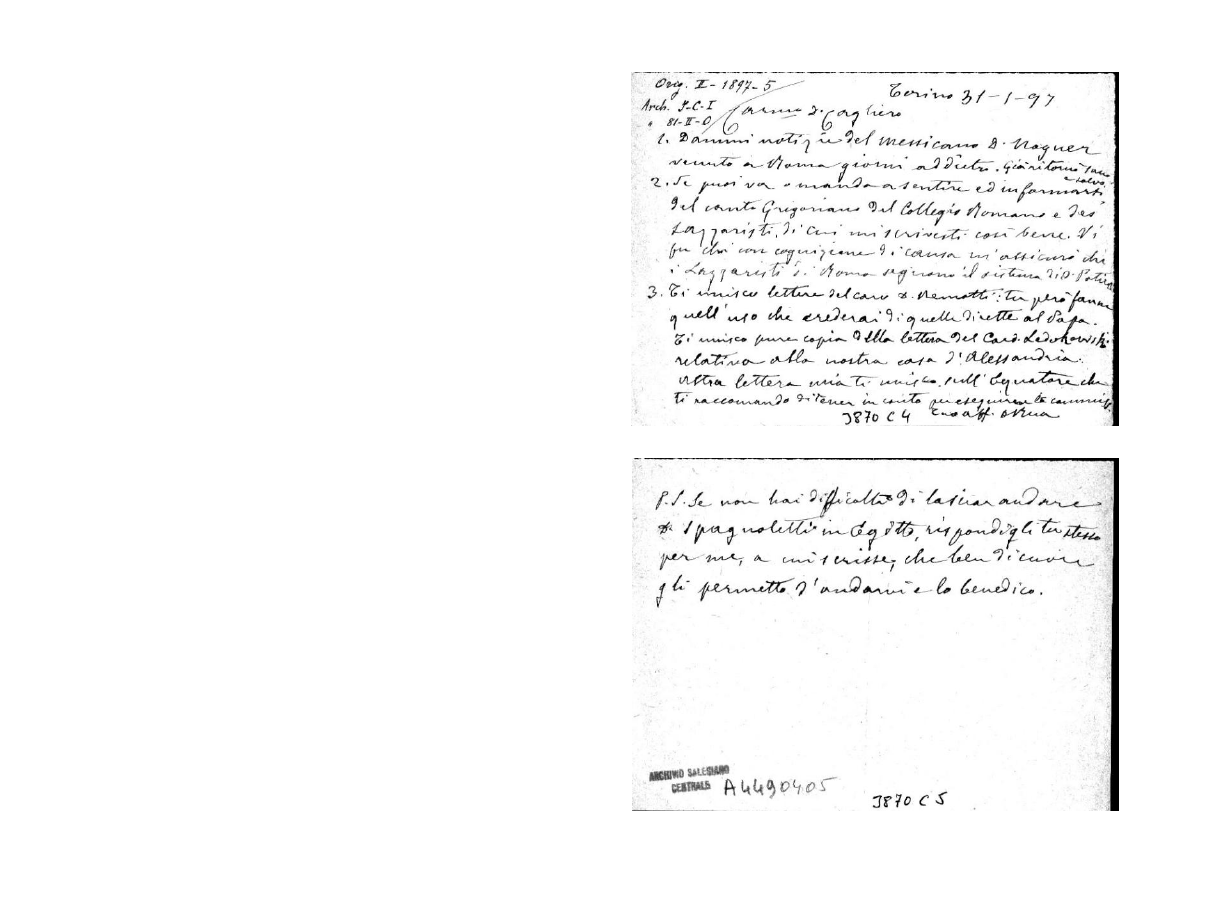 Orig. II - 1897 - 5
Torino 31-1-97
Arch. S-C-I
" 81-II-O
Carmo D. Cagliero
1. Dammi notizie del messicano D.
venuto a Roma giorni addietro. Già ritornò sano
e salvo.
2. Se puoi va o manda a sentire ed informarti
del canto Gregoriano del Collegio Romano e dei
Lazzaristi, di cui mi scrivesti così bene. Vi
fu chi con cognizione di causa m'assicurò che
i Lazzaristi di Roma seguono il sistema di D.
3. Ti unisco lettere del caro D. Remotti: tu però fanne
quell'uso che crederai di quelle dirette al Papa.
Ti unisco pure copia della lettera del Card. Ledokowski
relativa alla nostra casa d'Alessandria.
Altra lettera mia ti unisco sull'Equatore che
ti raccomando di tener in conto per eseguirne le commiss.
J870 C4 tuo aff. D Rua
P.S. Se non hai difficoltà di lasciar andare
D. Spagnoletti in Egitto, rispondigli tu stesso
per me, a cui scrisse, che ben di cuore
gli permetto d'andarvi e lo benedico.
ARCHIVIO SALESIANO
CENTRALE
A4490405
J870 C5